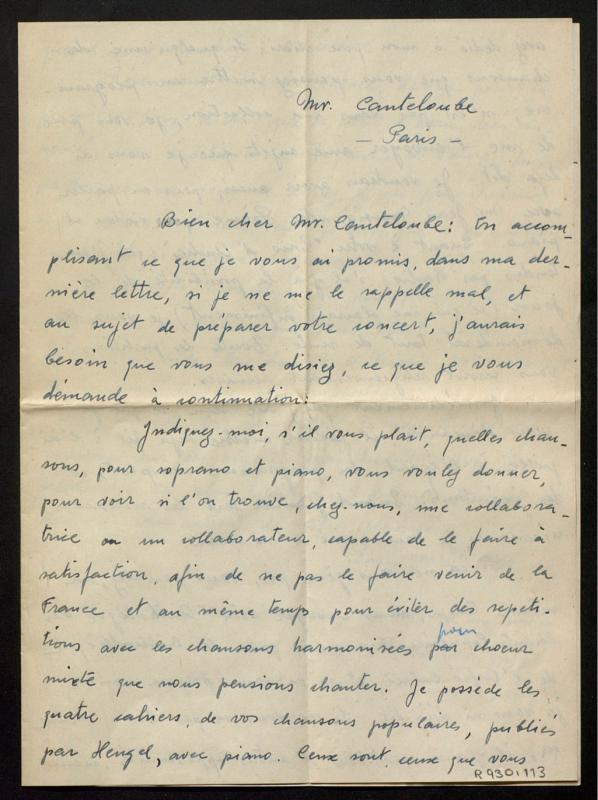 Mr. Canteloube
- Paris -
Bien cher Mr. Canteloube: En accom-
plisant ce que je vous ai promis, dans ma der-
nière lettre, si je ne me le rappelle mal, et
au sujet de préparer votre concert, j'aurais
besoin que vous me disiez, ce que je vous
démande à continuation:
Indiquez-moi, s'il vous plait, quelles chan-
sons, pour soprano et piano, vous voulez donner,
pour voir si l'on trouve, chez-nous, une collabora-
trice ou un collaborateur, capable de le faire à
satisfaction, afin de ne pas le faire venir de la
France et au même temps pour éviter des repeti-
tions avec les chansons harmonisées par choeur
pour
mixte que nous pensions chanter. Je possède les
quatre cahiers, de vos chansons populaires, publiés
par Hengel, avec piano. Ceux sont, ceux que vous
R.930.113